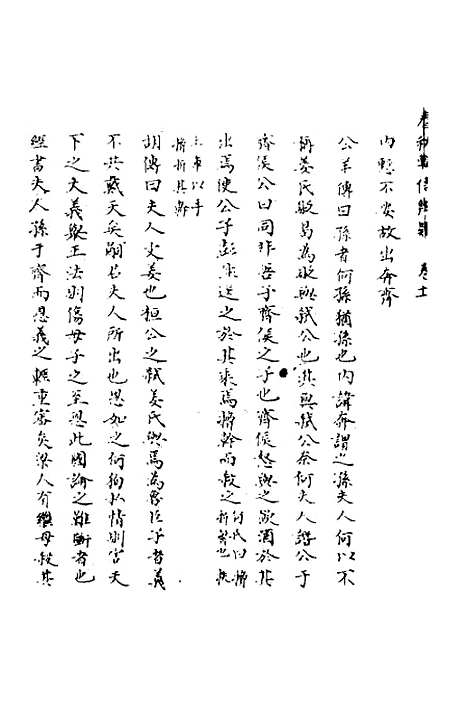 春秋單傳總類 卷十
內慙不安故出奔齊
公羊傳曰孫者何孫猶孫也內諱奔謂之孫夫人何以不
稱姜氏貶曷為貶與弒公也其與弒公奈何夫人譖公于
齊侯公曰同非吾子齊侯之子也齊侯怒與之飲酒於其
出焉使公子彭生送之於其乘焉搚幹而殺之何氏曰搚折聲也扶
上車以手
搚折其幹
胡傳曰夫人文姜也桓公之弒姜氏與焉為魯臣子者義
不共戴天矣嗣君夫人所出也恩如之何徇私情則害天
下之大義舉王法則傷母子之至恩此國論之難斷者也
經書夫人孫于齊而恩義之輕重審矣梁人有繼母殺其